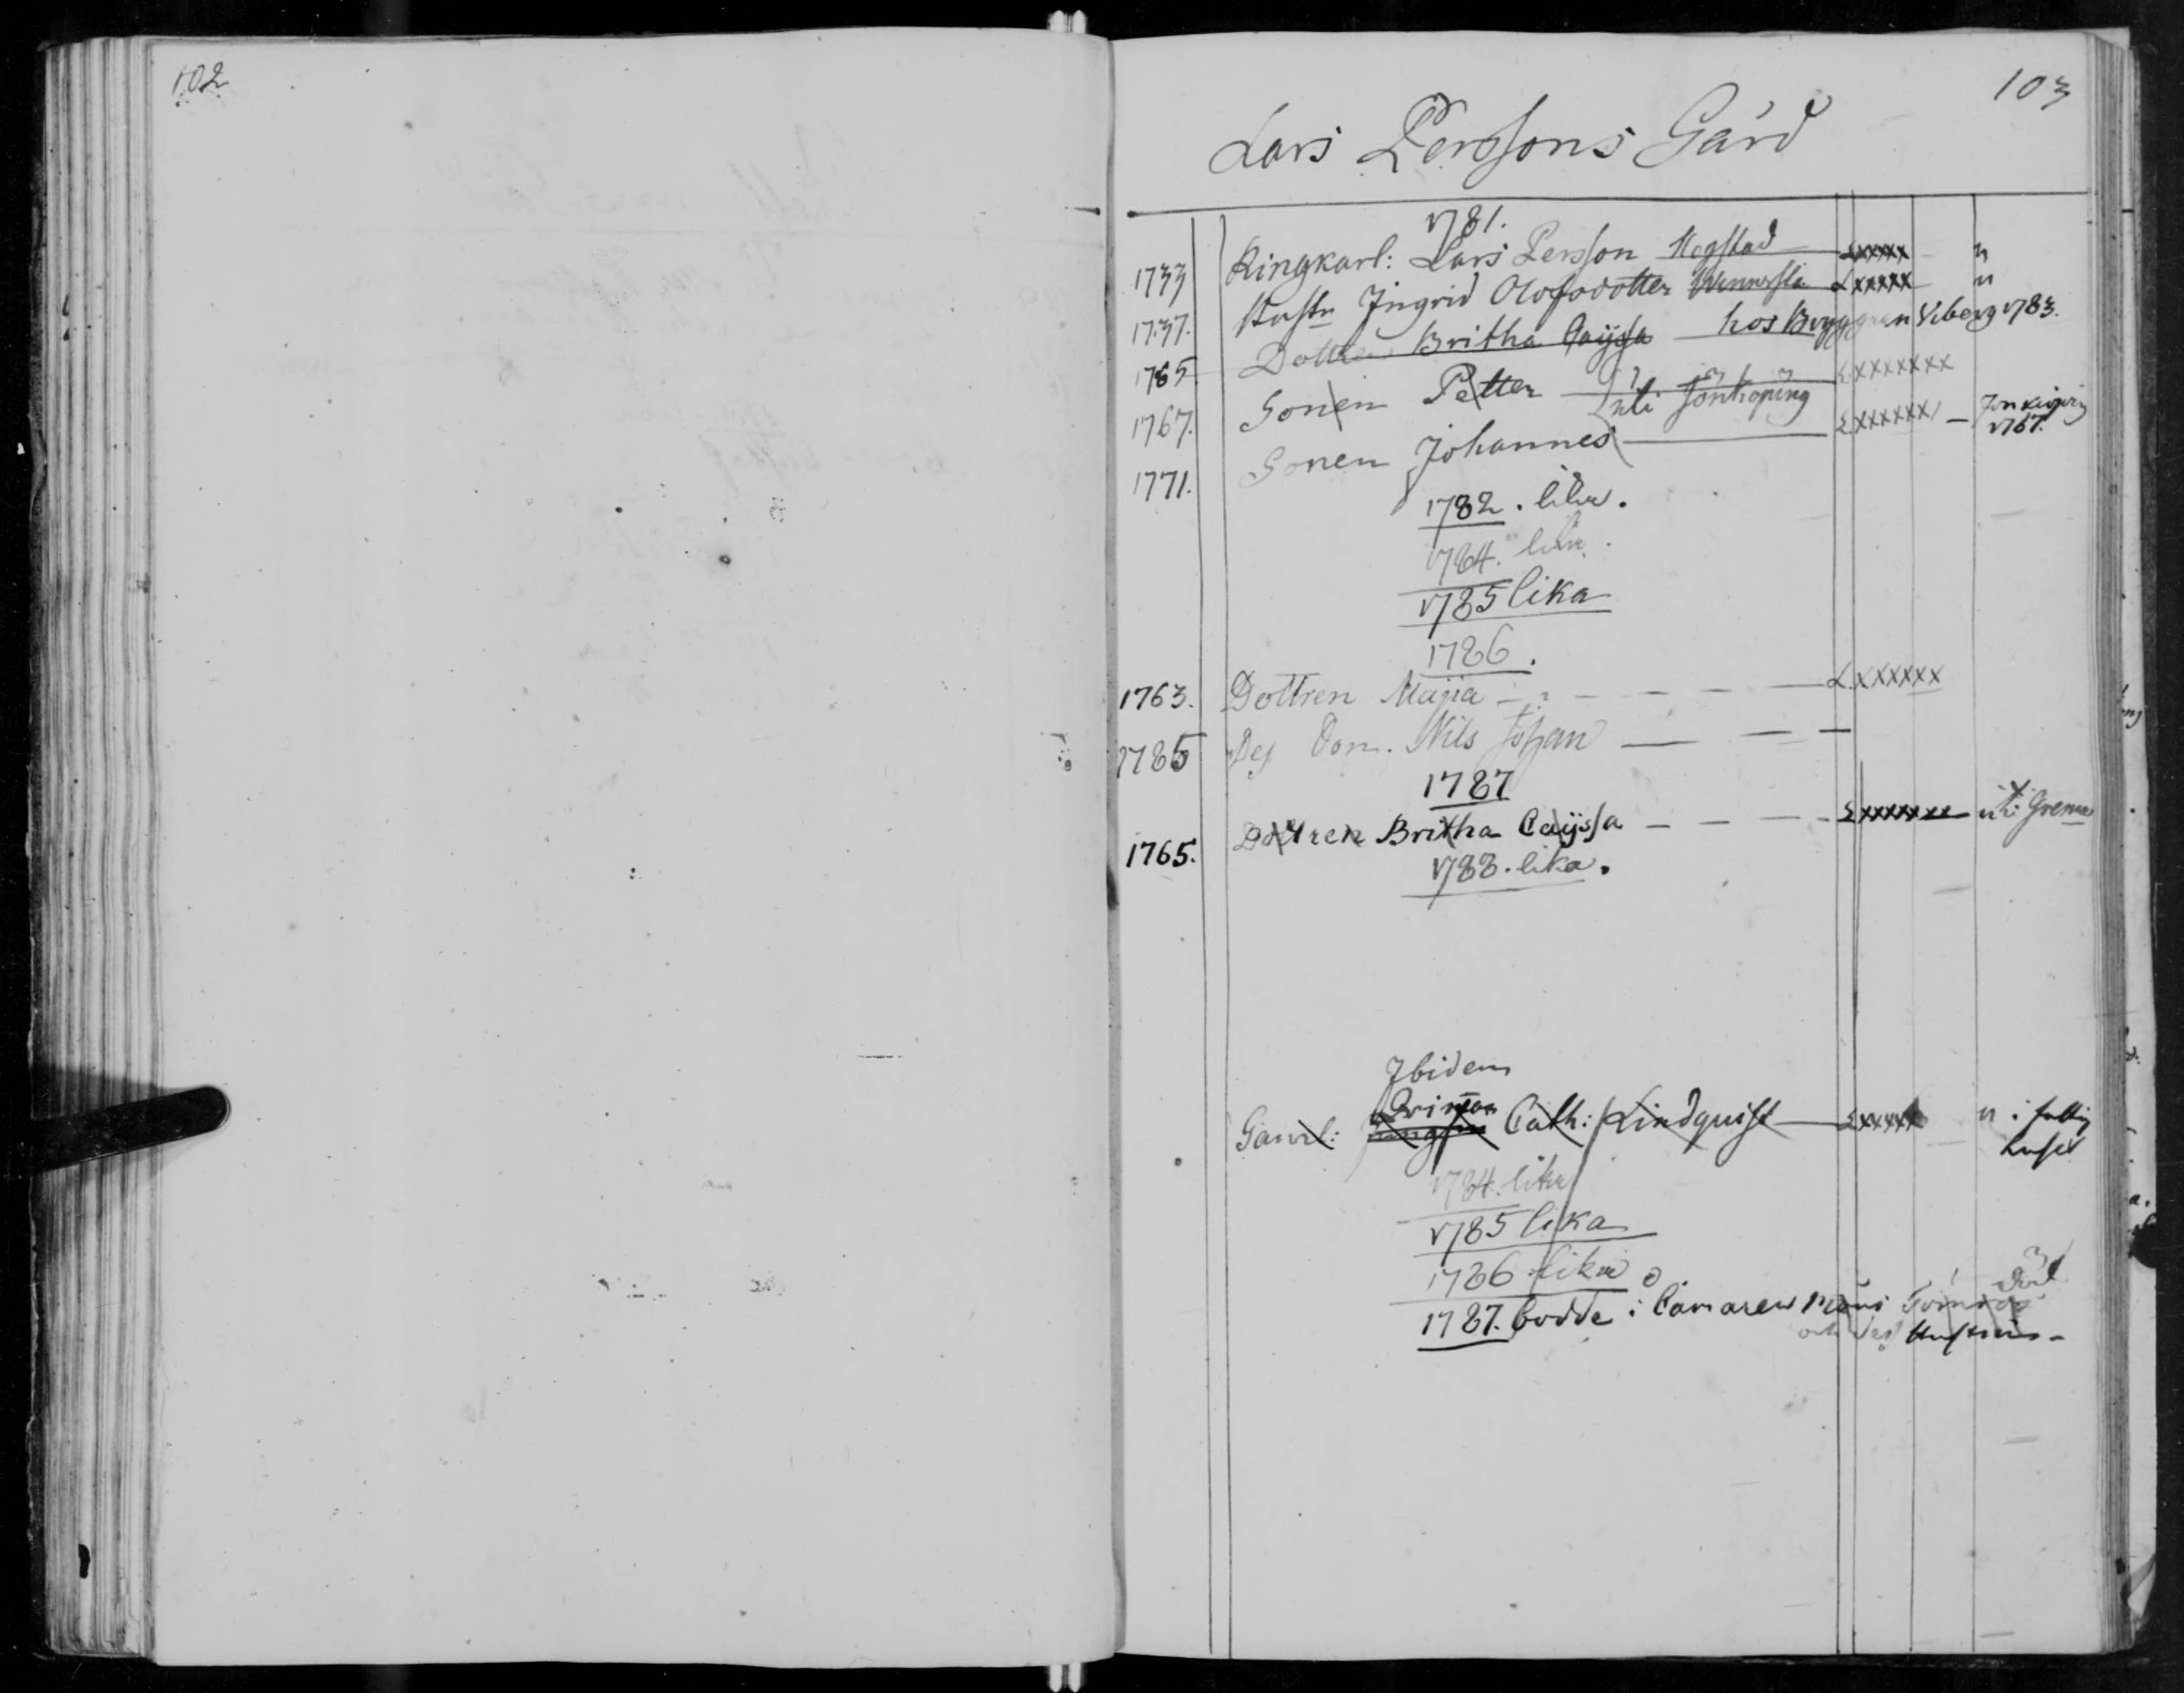 102
103
Lars Perssons Gård
1781.
1733 Ringkarl: Lars Persson Hogstad Lxxxxx n
1737. Hustr Ingrid Olofsdotter Lxxxxx n
1765 Dottren Britha Caijsa hos Bryggaren Viberg 1783.
1767. Sonen Petter Lxxxxxxx
uti Jönköping
1771. Sonen Johannes Lxxxxxx
1782. lika.
1784. lika.
1785 lika
1786.
1763. Dottren Majia Lxxxxxx
1785 Des Son. Nils Johan
1787
1765. Dottren Britha Caijssa Lxxxxxxx uti Grenna
1788. lika.
Ibidem
Gamb: Cath: Lindquist Lxxxxx n i fattig
huset
1784. lika
1785 lika
1786 lika
1787. bodde i Camaren Död
och des Hustru